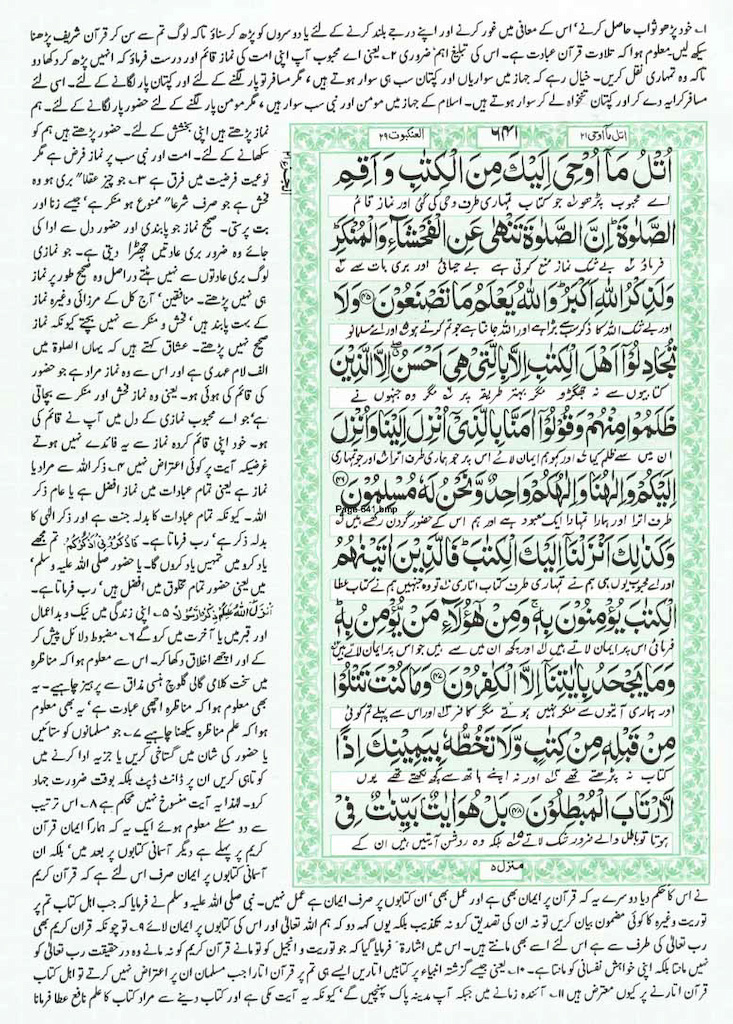 ۱۔ خود پڑھو ثواب حاصل کرنے، اس کے معانی میں غور کرنے اور اپنے درجے بلند کرنے کے لئے یا دوسروں کو پڑھ کر سناؤ تاکہ لوگ تم سے سن کر قرآن شریف پڑھنا
سیکھ لیں۔ معلوم ہوا کہ تلاوت قرآن عبادت ہے۔ اس کی تبلیغ اہم ضروری ۲۔ یعنی اے محبوب آپ اپنی امت کی نماز قائم اور درست فرماؤ کہ انہیں پڑھ کر دکھا دو
تاکہ وہ تمہاری نقل کریں۔ خیال رہے کہ جہاز میں سواریاں اور کپتان سب ہی سوار ہوتے ہیں، مگر مسافر تو پار لگنے کے لئے اور کپتان پار لگانے کے لئے۔ اسی لئے
مسافر کرایہ دے کر اور کپتان تنخواہ لے کر سوار ہوتے ہیں۔ اسلام کے جہاز میں مومن اور نبی سب سوار ہیں، مگر مومن پار لگنے کے لئے حضور پار لگانے کے لئے۔ ہم
اتل ما اوحی ۲۱
۶۴۱
العنکبوت ۲۹
اُتْلُ مَآ اُوْحِیَ اِلَیْكَ مِنَ الْكِتٰبِ وَ اَقِمِ
اے محبوب پڑھو جو کتاب تمہاری طرف وحی کی گئی اور نماز قائم
الصَّلٰوةَ ؕ اِنَّ الصَّلٰوةَ تَنْهٰی عَنِ الْفَحْشَآءِ وَ الْمُنْكَرِ ؕ
فرماؤ بے شک نماز منع کرتی ہے بے حیائی اور بری بات سے
وَ لَذِكْرُ اللّٰهِ اَكْبَرُ ؕ وَ اللّٰهُ یَعْلَمُ مَا تَصْنَعُوْنَ ﴿۴۵﴾ وَ لَا
اور بے شک اللہ کا ذکر سب سے بڑا ہے اور اللہ جانتا ہے جو تم کرتے ہو اور اے مسلمانو
تُجَادِلُوْۤا اَهْلَ الْكِتٰبِ اِلَّا بِالَّتِیْ هِیَ اَحْسَنُ ۖ اِلَّا الَّذِیْنَ
کتابیوں سے نہ جھگڑو مگر بہتر طریقہ پر مگر وہ جنہوں نے
ظَلَمُوْا مِنْهُمْ وَ قُوْلُوْۤا اٰمَنَّا بِالَّذِیْۤ اُنْزِلَ اِلَیْنَا وَ اُنْزِلَ
ان میں سے ظلم کیا اور کہو ہم ایمان لائے اس پر جو ہماری طرف اترا اور جو تمہاری
اِلَیْكُمْ وَ اِلٰهُنَا وَ اِلٰهُكُمْ وَاحِدٌ وَّ نَحْنُ لَهٗ مُسْلِمُوْنَ ﴿۴۶﴾
Page-641.bmp
طرف اترا اور ہمارا تمہارا ایک معبود ہے اور ہم اس کے حضور گردن رکھے ہیں
وَ كَذٰلِكَ اَنْزَلْنَاۤ اِلَیْكَ الْكِتٰبَ ؕ فَالَّذِیْنَ اٰتَیْنٰهُمُ
اور اے محبوب یوں ہی ہم نے تمہاری طرف کتاب اتاری تو وہ جنہیں ہم نے کتاب عطا
الْكِتٰبَ یُؤْمِنُوْنَ بِهٖ ۚ وَ مِنْ هٰۤؤُلَآءِ مَنْ یُّؤْمِنُ بِهٖ ؕ
فرمائی اس پر ایمان لاتے ہیں اور کچھ ان میں سے ہیں جو اس پر ایمان لاتے ہیں
وَ مَا یَجْحَدُ بِاٰیٰتِنَاۤ اِلَّا الْكٰفِرُوْنَ ﴿۴۷﴾ وَ مَا كُنْتَ تَتْلُوْا
اور ہماری آیتوں سے منکر نہیں ہوتے مگر کافر اور اس سے پہلے تم کوئی
مِنْ قَبْلِهٖ مِنْ كِتٰبٍ وَّ لَا تَخُطُّهٗ بِیَمِیْنِكَ اِذًا
کتاب نہ پڑھتے تھے اور نہ اپنے ہاتھ سے کچھ لکھتے تھے یوں
لَّارْتَابَ الْمُبْطِلُوْنَ ﴿۴۸﴾ بَلْ هُوَ اٰیٰتٌۢ بَیِّنٰتٌ فِیْ
ہوتا تو باطل والے ضرور شک لاتے بلکہ وہ روشن آیتیں ہیں ان کے
منزل ۵
نماز پڑھتے ہیں اپنی بخشش کے لئے۔ حضور پڑھتے ہیں ہم کو
سکھانے کے لئے۔ امت اور نبی سب پر نماز فرض ہے مگر
نوعیت فرضیت میں فرق ہے ۳۔ جو چیز عقلاً بری ہو وہ
فحش ہے جو صرف شرعاً ممنوع ہو منکر ہے، جیسے زنا اور
بت پرستی۔ صحیح نماز جو پابندی اور حضور دل سے ادا کی
جائے وہ ضرور بری عادتیں چھڑا دیتی ہے۔ جو نمازی
لوگ بری عادتوں سے نہیں بچتے دراصل وہ صحیح طور پر نماز
ہی نہیں پڑھتے۔ منافقین، آج کل کے مرزائی وغیرہ نماز
کے بہت پابند ہیں، فحش و منکر سے نہیں بچتے کیونکہ نماز
صحیح نہیں پڑھتے۔ عشاق کہتے ہیں کہ یہاں الصلوٰۃ میں
الف لام عہدی ہے اور اس سے وہ نماز مراد ہے جو حضور
کی قائم کی ہوئی ہو۔ یعنی وہ نماز فحش اور منکر سے بچاتی
ہے، جو اے محبوب نمازی کے دل میں آپ نے قائم کی
ہو۔ خود اپنی قائم کردہ نماز سے یہ فائدے نہیں ہوتے
غرضیکہ آیت پر کوئی اعتراض نہیں ۴۔ ذکر اللہ سے مراد یا
نماز ہے یعنی تمام عبادات میں نماز افضل ہے یا عام ذکر
اللہ۔ کیونکہ تمام عبادات کا بدلہ جنت ہے اور ذکر الٰہی کا
بدلہ ذکر ہے، رب فرماتا ہے۔ فَاذْكُرُوْنِیْۤ اَذْكُرْكُمْ تم مجھے
یاد کرو میں تمہیں یاد کروں گا۔ یا حضور صلی اللہ علیہ وسلم،
میں یعنی حضور تمام مخلوق میں افضل ہیں، رب فرماتا ہے۔
اَنْزَلَ اللّٰهُ اِلَیْكُمْ ذِكْرًا رَّسُوْلًا ۵۔ اپنی زندگی میں نیک و بد اعمال
اور قبر میں یا آخرت میں کرو گے ۶۔ مضبوط دلائل پیش کر
کے اور اچھے اخلاق دکھا کر۔ اس سے معلوم ہوا کہ مناظرہ
میں سخت کلامی گالی گلوچ ہنسی مذاق سے پرہیز چاہیے۔ یہ
معلوم ہوا کہ مناظرہ اچھی عبادت ہے، یہ بھی معلوم
ہوا کہ علم مناظرہ سیکھنا چاہیے ۷۔ جو مسلمانوں کو ستائیں
یا حضور کی شان میں گستاخی کریں یا جزیہ ادا کرنے میں
کوتاہی کریں ان پر ڈانٹ ڈپٹ بلکہ بوقت ضرورت جہاد
کرو۔ لہٰذا یہ آیت منسوخ نہیں محکم ہے ۸۔ اس ترتیب
سے دو مسئلے معلوم ہوئے ایک یہ کہ ہمارا ایمان قرآن
کریم پر پہلے ہے دیگر آسمانی کتابوں پر بعد میں، بلکہ ان
آسمانی کتابوں پر ایمان صرف اس لئے ہے کہ قرآن کریم
نے اس کا حکم دیا دوسرے یہ کہ قرآن پر ایمان بھی ہے اور عمل بھی، ان کتابوں پر صرف ایمان ہے عمل نہیں۔ نبی صلی اللہ علیہ وسلم نے فرمایا کہ جب اہل کتاب تم پر
توریت وغیرہ کا کوئی مضمون بیان کریں تو نہ ان کی تصدیق کرو نہ تکذیب بلکہ یوں کہہ دو کہ ہم اللہ تعالیٰ اور اس کی کتابوں پر ایمان لائے ۹۔ تو چونکہ قرآن کریم بھی
رب تعالیٰ کی طرف سے ہے اس لئے اسے بھی مانتے ہیں۔ اس میں اشارۃً فرمایا گیا کہ جو توریت و انجیل کو تو مانے قرآن کریم کو نہ مانے وہ در حقیقت رب تعالیٰ کو
نہیں مانتا بلکہ اپنی خواہش نفسانی کو مانتا ہے۔ ۱۰۔ یعنی جیسے گزشتہ انبیاء پر کتابیں اتاریں ایسے ہی تم پر قرآن اتارا جب مسلمان ان پر اعتراض نہیں کرتے تو اہل کتاب
قرآن اتارنے پر کیوں معترض ہیں ۱۱۔ آئندہ زمانے میں جبکہ آپ مدینہ پاک پہنچیں گے، کیونکہ یہ آیت مکی ہے اور کتاب دینے سے مراد کتاب کا علم نافع عطا فرمانا